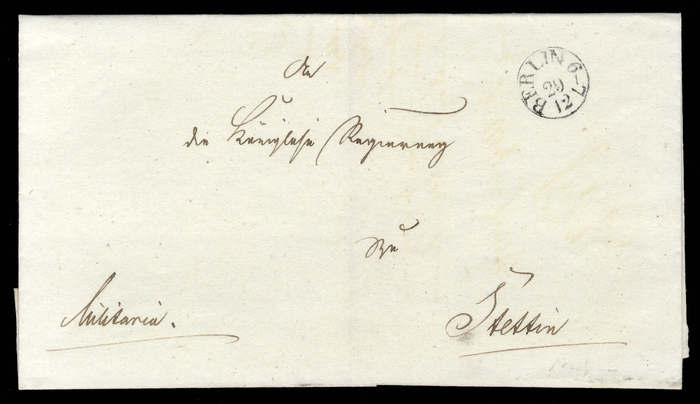 An
BERLIN 6-7
29
12
die Königliche Regierung
zu
Militaria.
Stettin